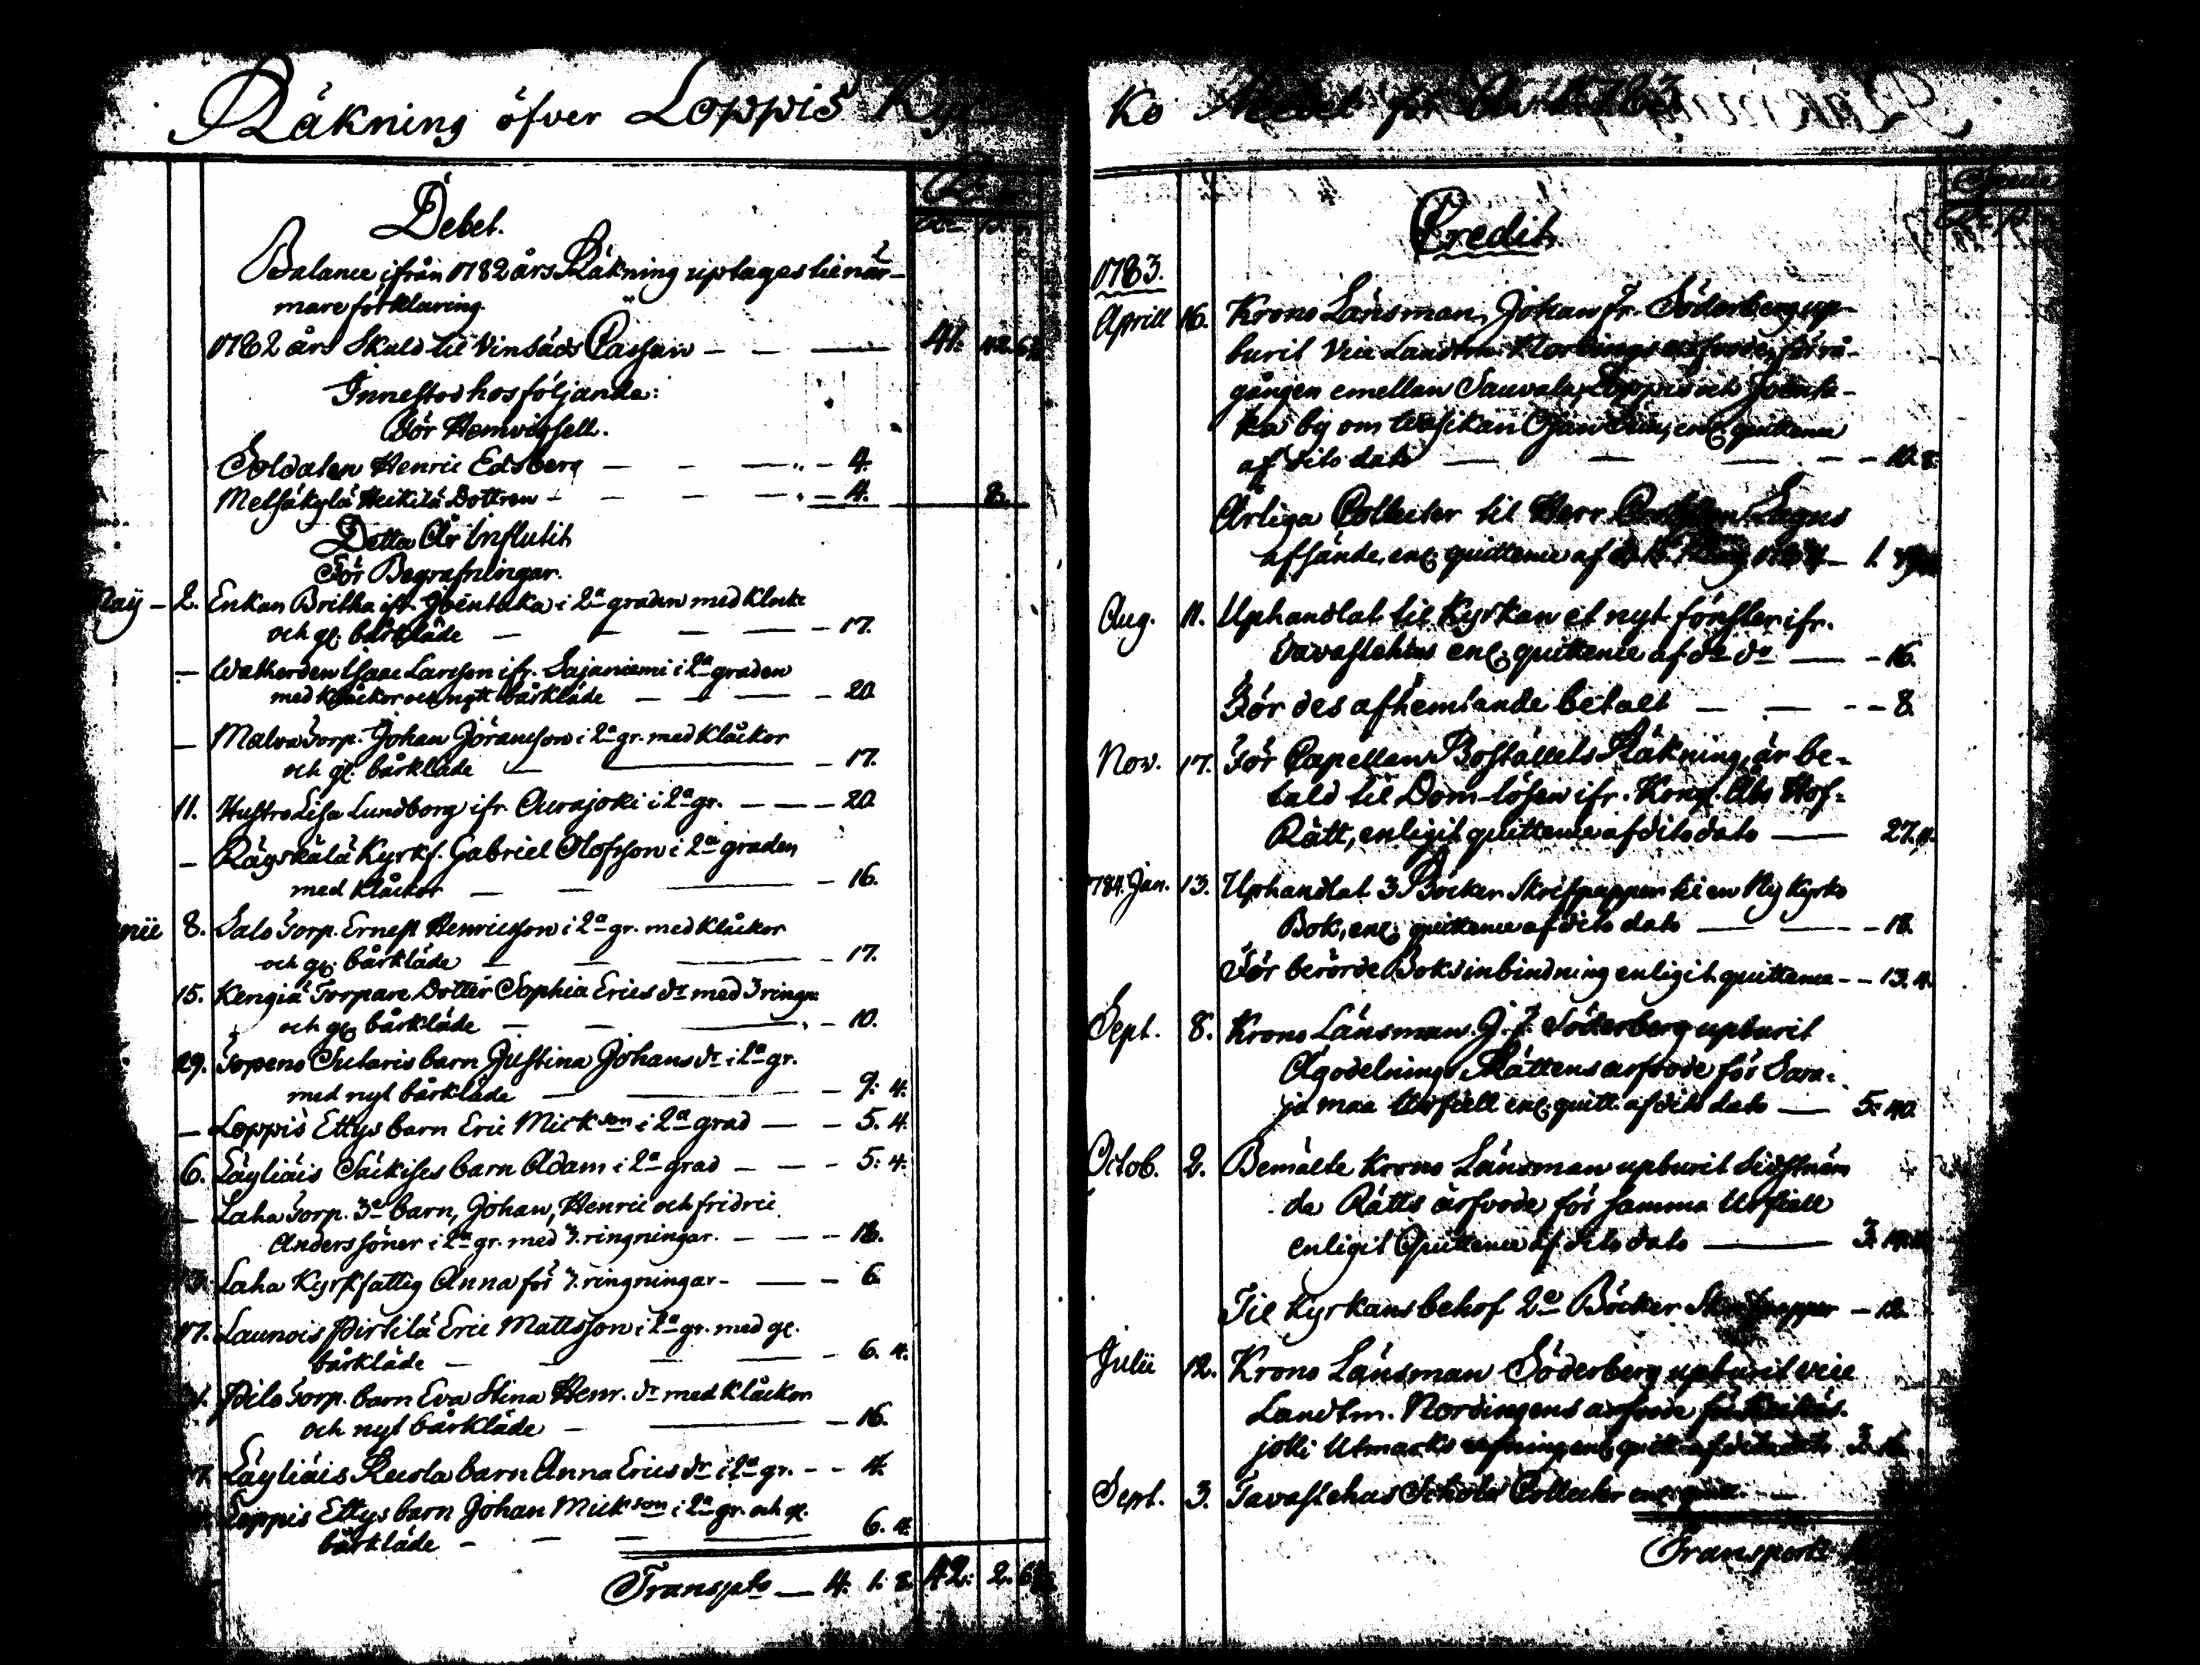 Räkning öfver Loppis Kyr
Debet.
Balance ifrån 1782 års Räkning uptages til när-
mare förklaring
1782 års Skuld til Vinsäds Cassan — — — 41. 42. 6
Innestod hos följande:
För Hemvigsell.
Soldaten Henric Edsberg — — — 4.
Metsäkylä Heikilä Dottren — — — 4. 8.
Detta År Influtit
För Begrafningar.
Maij — 2. Enkan Britha ifr. Joentaka i 2a graden med Klocka
och gl. bårkläde — — — 17.
— Isaac Larsson ifr. Sajaniemi i 2a graden
med Klåckor och nytt bårkläde — — — 20.
— Malva Torp. Johan Göransson i 2a gr. med Klåckor
och gl. bårkläde — — 17.
11. Hustro Lisa Lundborg ifr. Aurajoki i 2a gr. — — 20.
— Räyskälä Kyrkf. Gabriel Olofsson i 2a graden
med Klåckor — — 16.
8. Salo Torp. Ernest Henricsson i 2a gr. med Klåckor
och gl. bårkläde — — 17.
15. Kengiä Torpare Dotter Sophia Erics dr med 3 ringn.
och gl. bårkläde — — 10.
29. Topeno Sutaris barn Justina Johans dr i 2a gr.
med nyt bårkläde — — 9: 4.
— Loppis Ettys barn Eric Mickson i 2a grad — — 5. 4.
6. Läyliäis Säckises barn Adam i 2a grad — — 5: 4.
— Laha Torp. 3ne barn, Johan, Henric och fridric
Anders söner i 2a gr. med 3. ringningar. — — 18.
Laha Kyrkfattig Anna för 3. ringningar — — 6.
17. Launois Pirtilä Eric Mattsson i 2a gr. med gl.
bårkläde — — 6. 4.
Pilo Torp. barn Eva Stina Henr. dr med Klåckor
och nyt bårkläde — — 16.
7. Läyliäis Reisola barn Anna Erics dr i 2a gr. — — 4.
Loppis Ettys barn Johan Mickson i 2a gr. och gl.
bårkläde — — 6. 4.
Transpto — 4. 1. 8. 42. 2. 6
ko Medel för År 1783
Credit.
1783.
Aprill 16. Krono Länsman Johan Fr. Söderberg up-
burit Vice Landtm. Nordings arfvode, för rå-
gången emellan Sauvala, Loppis och Joenta-
ka by om Ojan enl. quittence
af dito dato — — — 10. 8.
Årliga Collecter til Herr Lagus
afsände, enl. quittence af 1.
Aug. 11. Uphandlat til Kyrkan et nyt fönster ifr.
Tavastehus enl. quittence af do do — 16.
För des afhemtande betalt — — 8.
Nov. 17. För Capellans Boställets Räkning, är be-
tald til Dom-lösen ifr. Kongl. Åbo Hof-
Rätt, enligit quittence af dito dato — 27. 11.
784. Jan. 13. Uphandlat 3 Böcker Skrifpapper til en Ny Kyrko
Bok, enl. quittence af dito dato — — 18.
För berörde Boks inbindning enligit quittence — 13. 4.
Sept. 8. Krono Länsman J. F. Söderberg upburit
Ägodelnings Rättens arfvode för Sara-
jo maa Urfiell enl. quitt. af dito dato — 5: 40.
Octob. 2. Bemälte Krono Länsman upburit sidstnäm
da Rätts arfvode för samma Urfiell
enligit Quittence af dito dato — 3.
Til Kyrkans behof 2ne Böcker Skrifpapper — 12.
Julii 12. Krono Länsman Söderberg upburit vice
Landtm. Nordingens arfvode
jotti Utmarks enl. quitt. af dito dato 3.
Sept. 3. Tavastehus Schola Collecter enl. quitt.
Transport